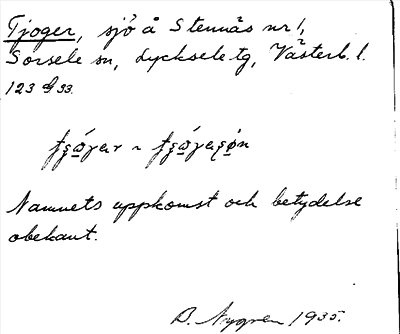 Tjoger, sjö å Stennäs nr 1,
Sorsele sn, Lycksele tg, Västerb. l.
123 33.
Namnets uppkomst och betydelse
obekant.
B. Nygren 1935.